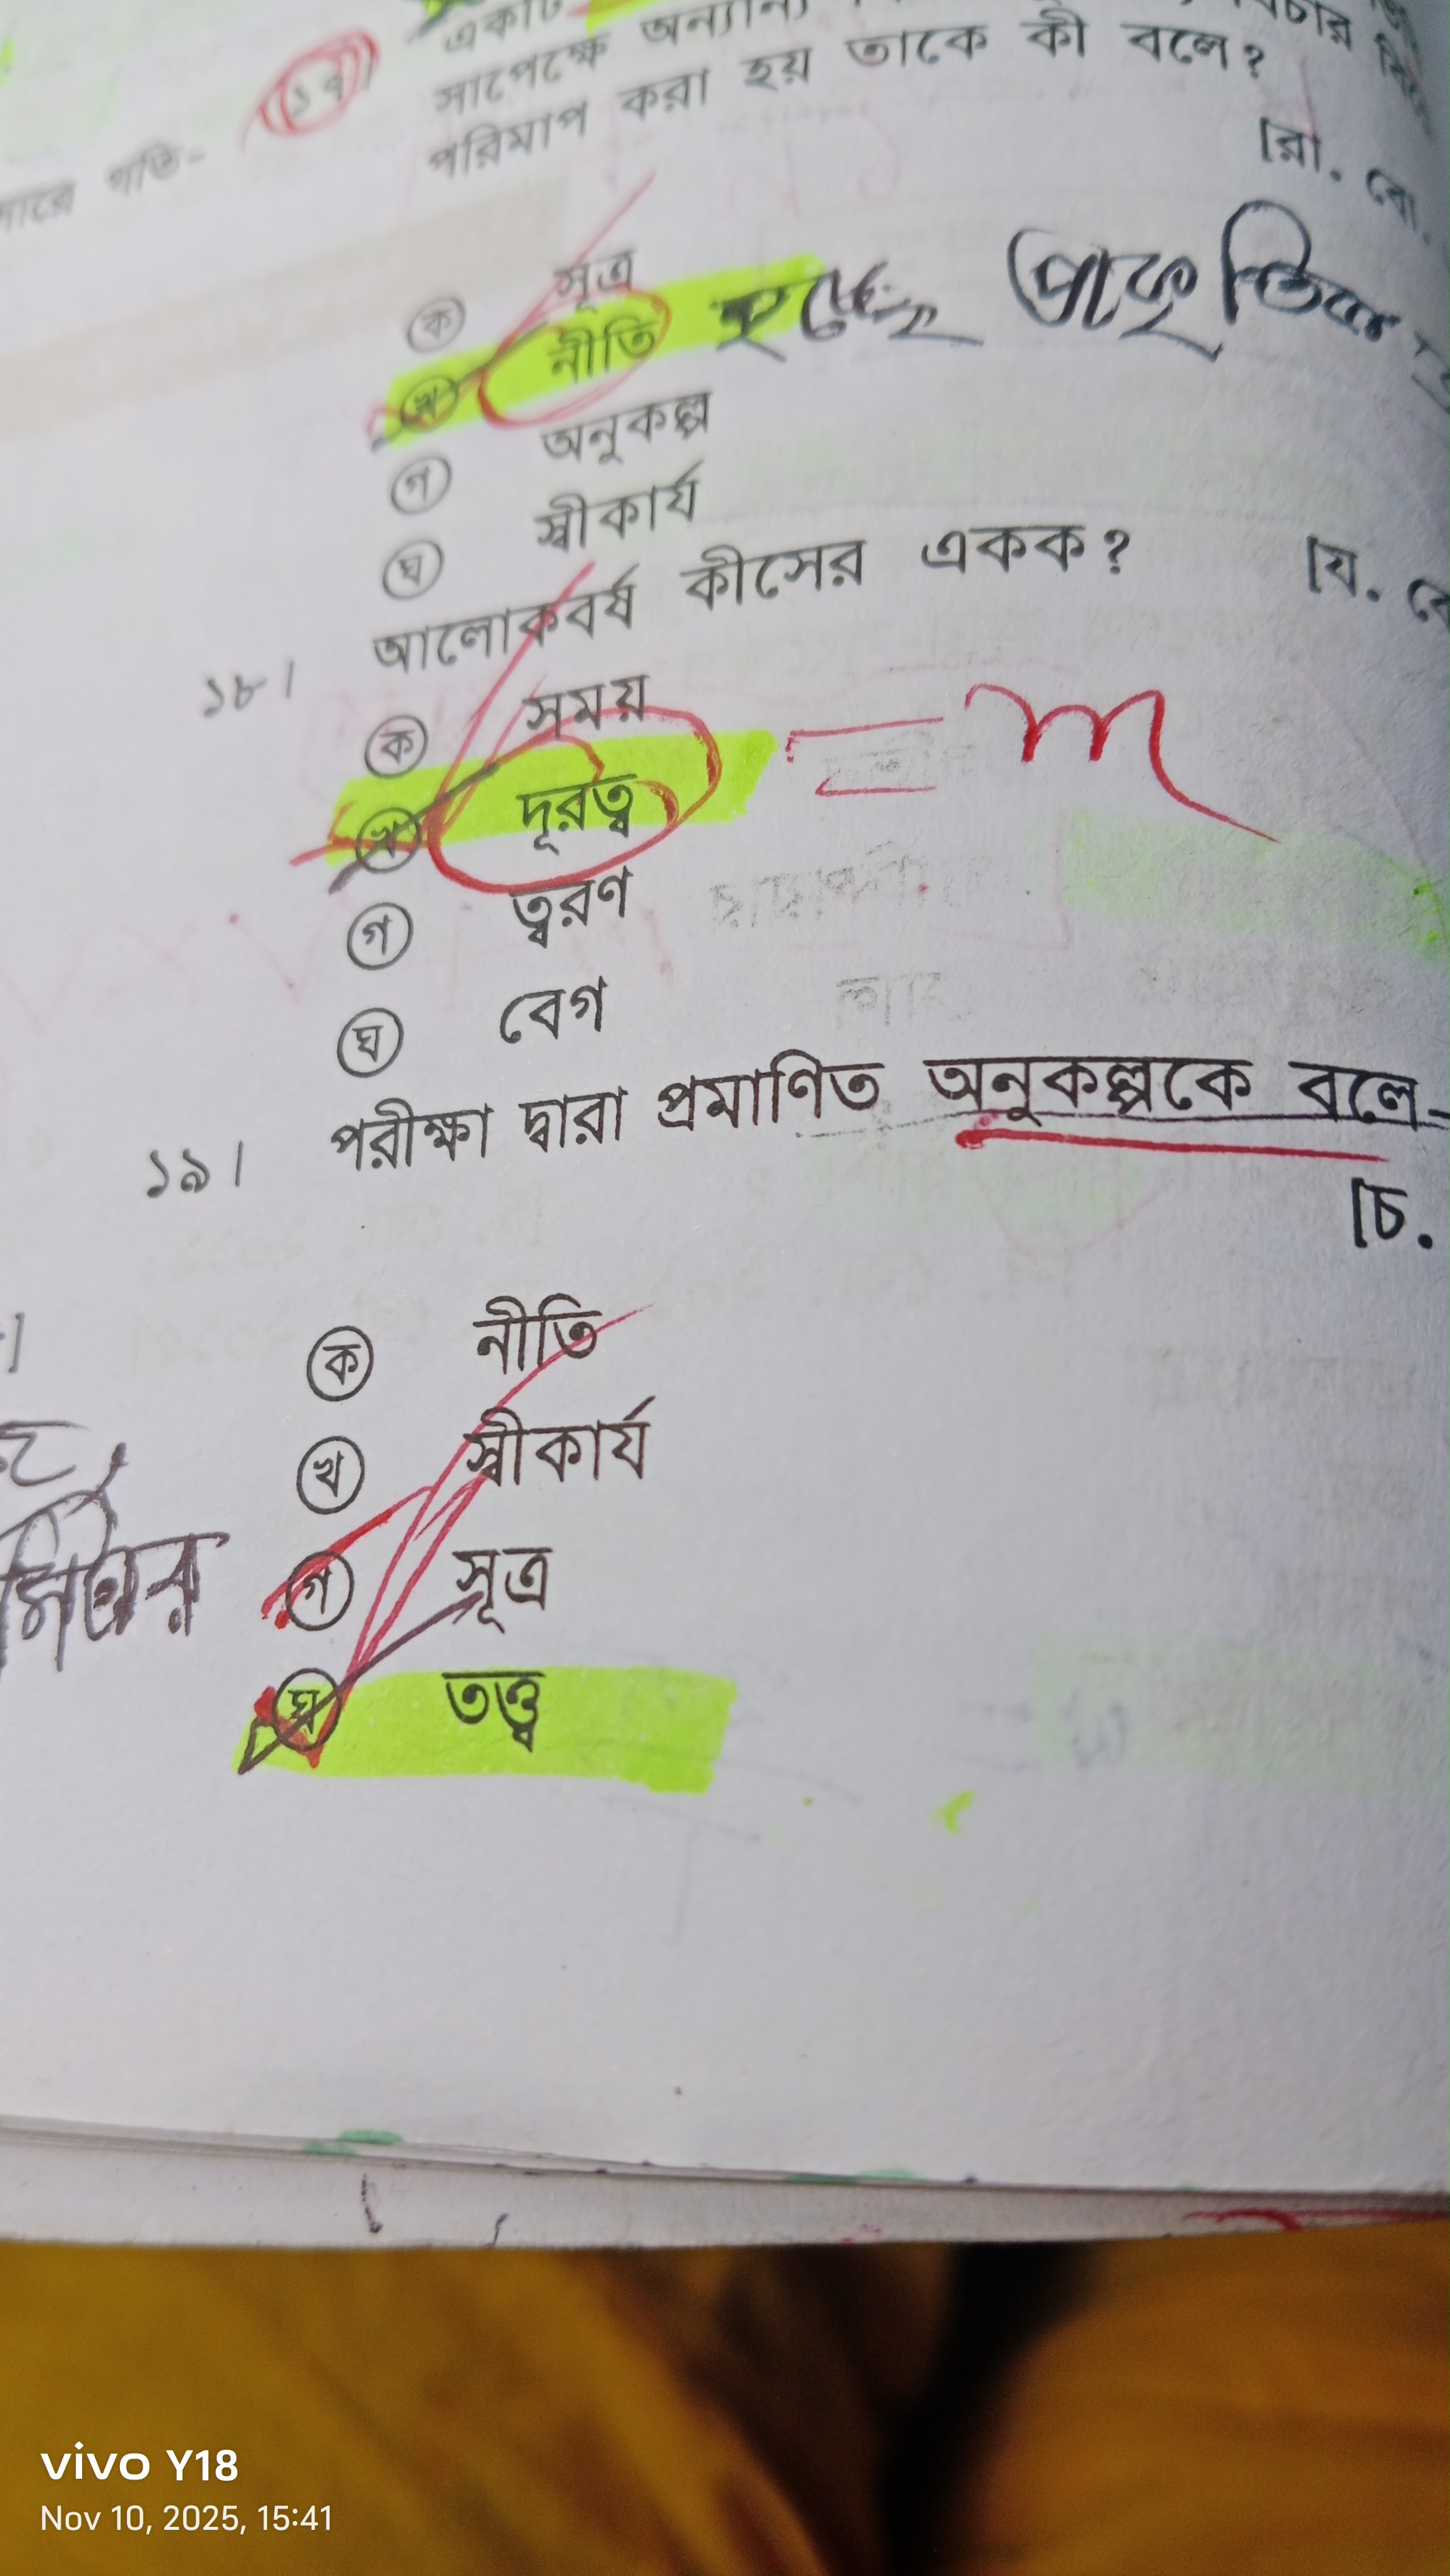 একটি
সাপেক্ষে অন্যান্য
১৭।
পরিমাপ করা হয় তাকে কী বলে?
[রা. বো.
গতি-
ক সূত্র
খ নীতি হচ্ছে প্রাকৃতিক
গ অনুকল্প
ঘ স্বীকার্য
১৮। আলোকবর্ষ কীসের একক?
[য. বো
ক সময়
খ দূরত্ব = m
গ ত্বরণ
ঘ বেগ
১৯। পরীক্ষা দ্বারা প্রমাণিত অনুকল্পকে বলে-
[চ.
ক নীতি
খ স্বীকার্য
গ সূত্র
ঘ তত্ত্ব
vivo Y18
Nov 10, 2025, 15:41